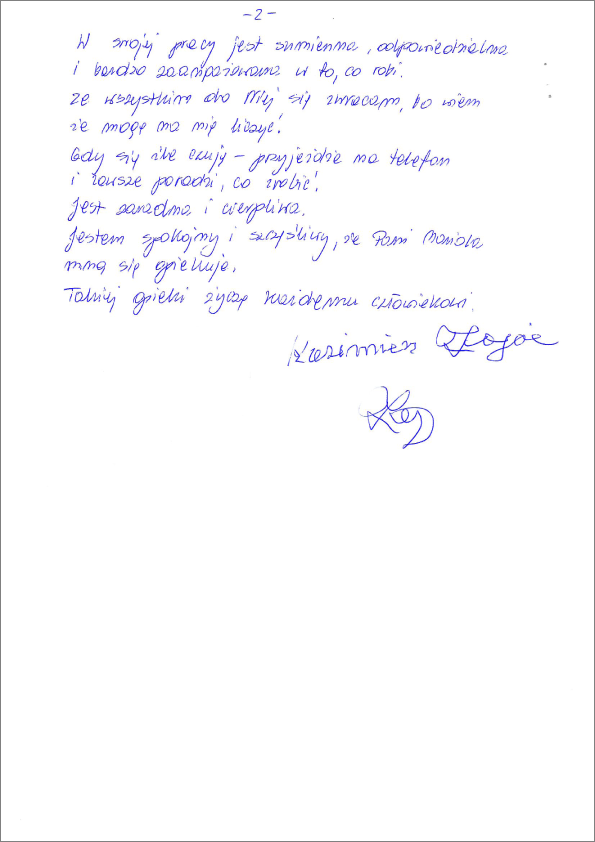 -2-
W swojej pracy jest sumienna, odpowiedzialna
i bardzo zaangażowana w to, co robi.
Ze wszystkim do Niej się zwracam, bo wiem
że mogę na nią liczyć!
Gdy się źle czuję - przyjedzie na telefon
i zawsze poradzi, co zrobić!
Jest zaradna i cierpliwa.
Jestem spokojny i szczęśliwy, że Pani Mariola
mną się opiekuje.
Takiej opieki życzę każdemu człowiekowi.
Kazimierz